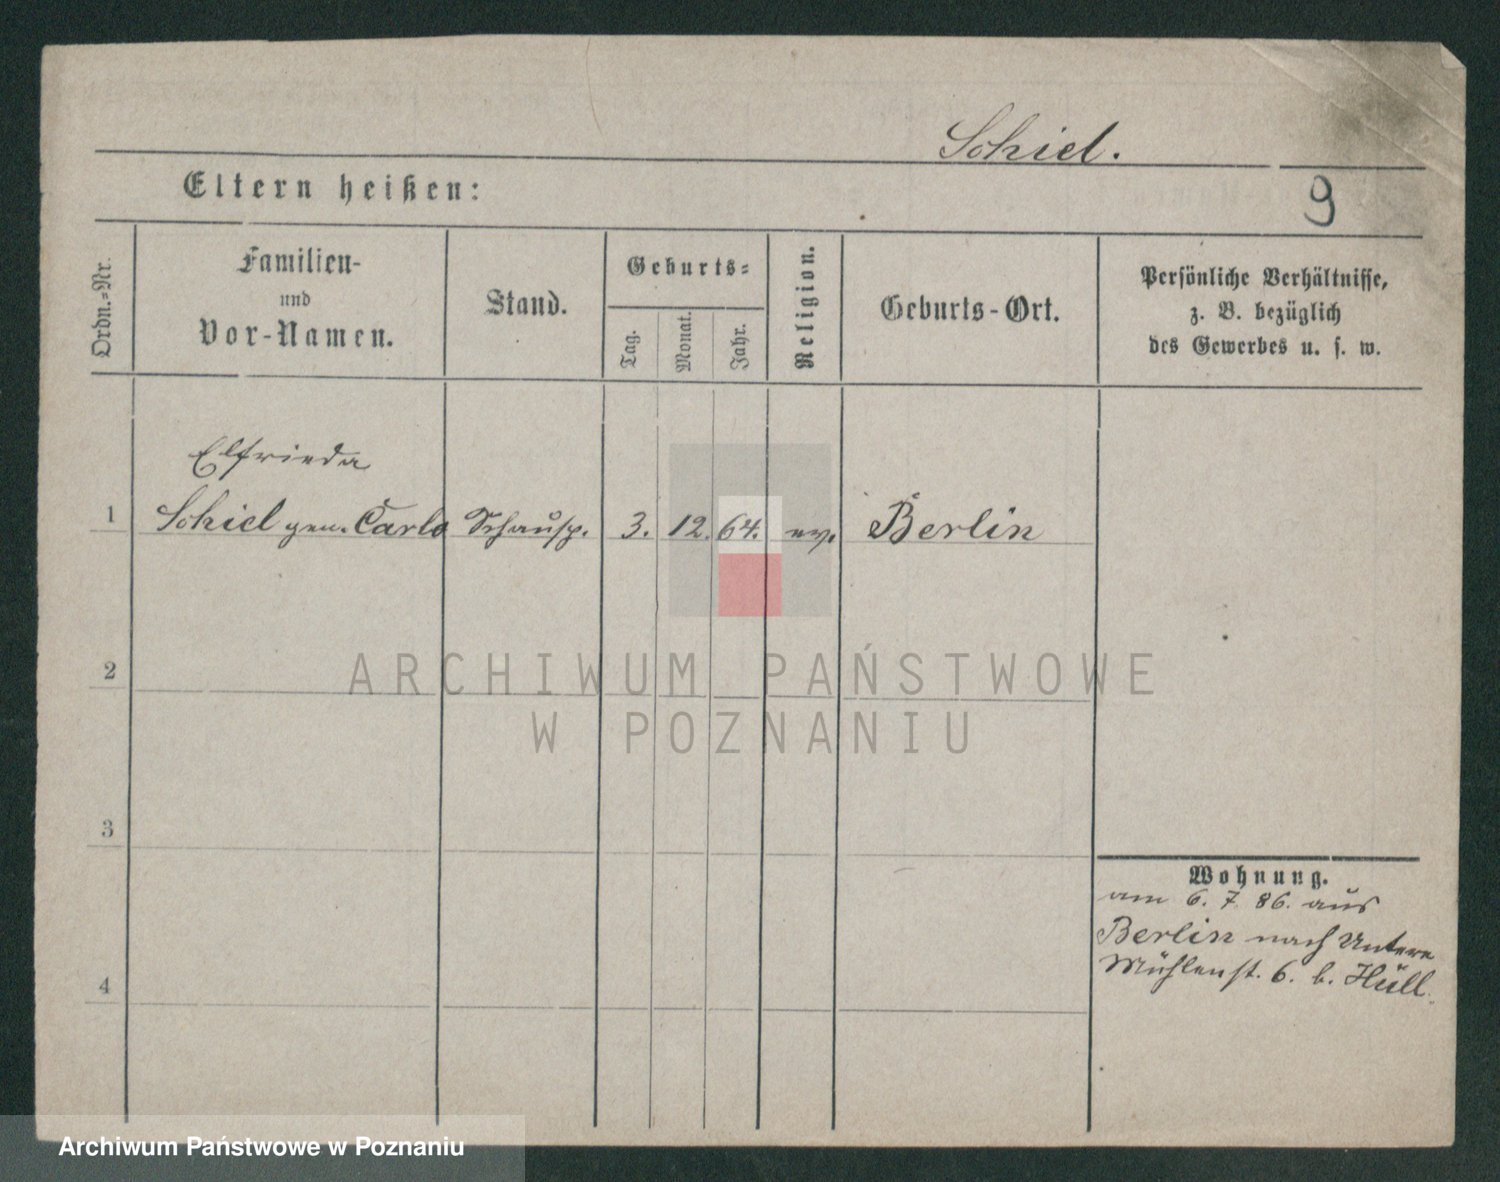 Schiel.
Eltern heißen:
9
Ordn.=Nr.
Familien-
und
Vor-Namen.
Stand.
Geburts=
Tag.
Monat.
Jahr.
Religion.
Geburts-Ort.
Persönliche Verhältnisse,
z. B. bezüglich
des Gewerbes u. s. w.
Elfrieda
1 Schiel gen. Carlo Schausp. 3. 12. 64. ev. Berlin
2
3
4
Wohnung.
am 6. 7. 86. aus
Berlin nach Untere
Mühlenst. 6. b. Hüll.
ARCHIWUM PAŃSTWOWE
W POZNANIU
Archiwum Państwowe w Poznaniu